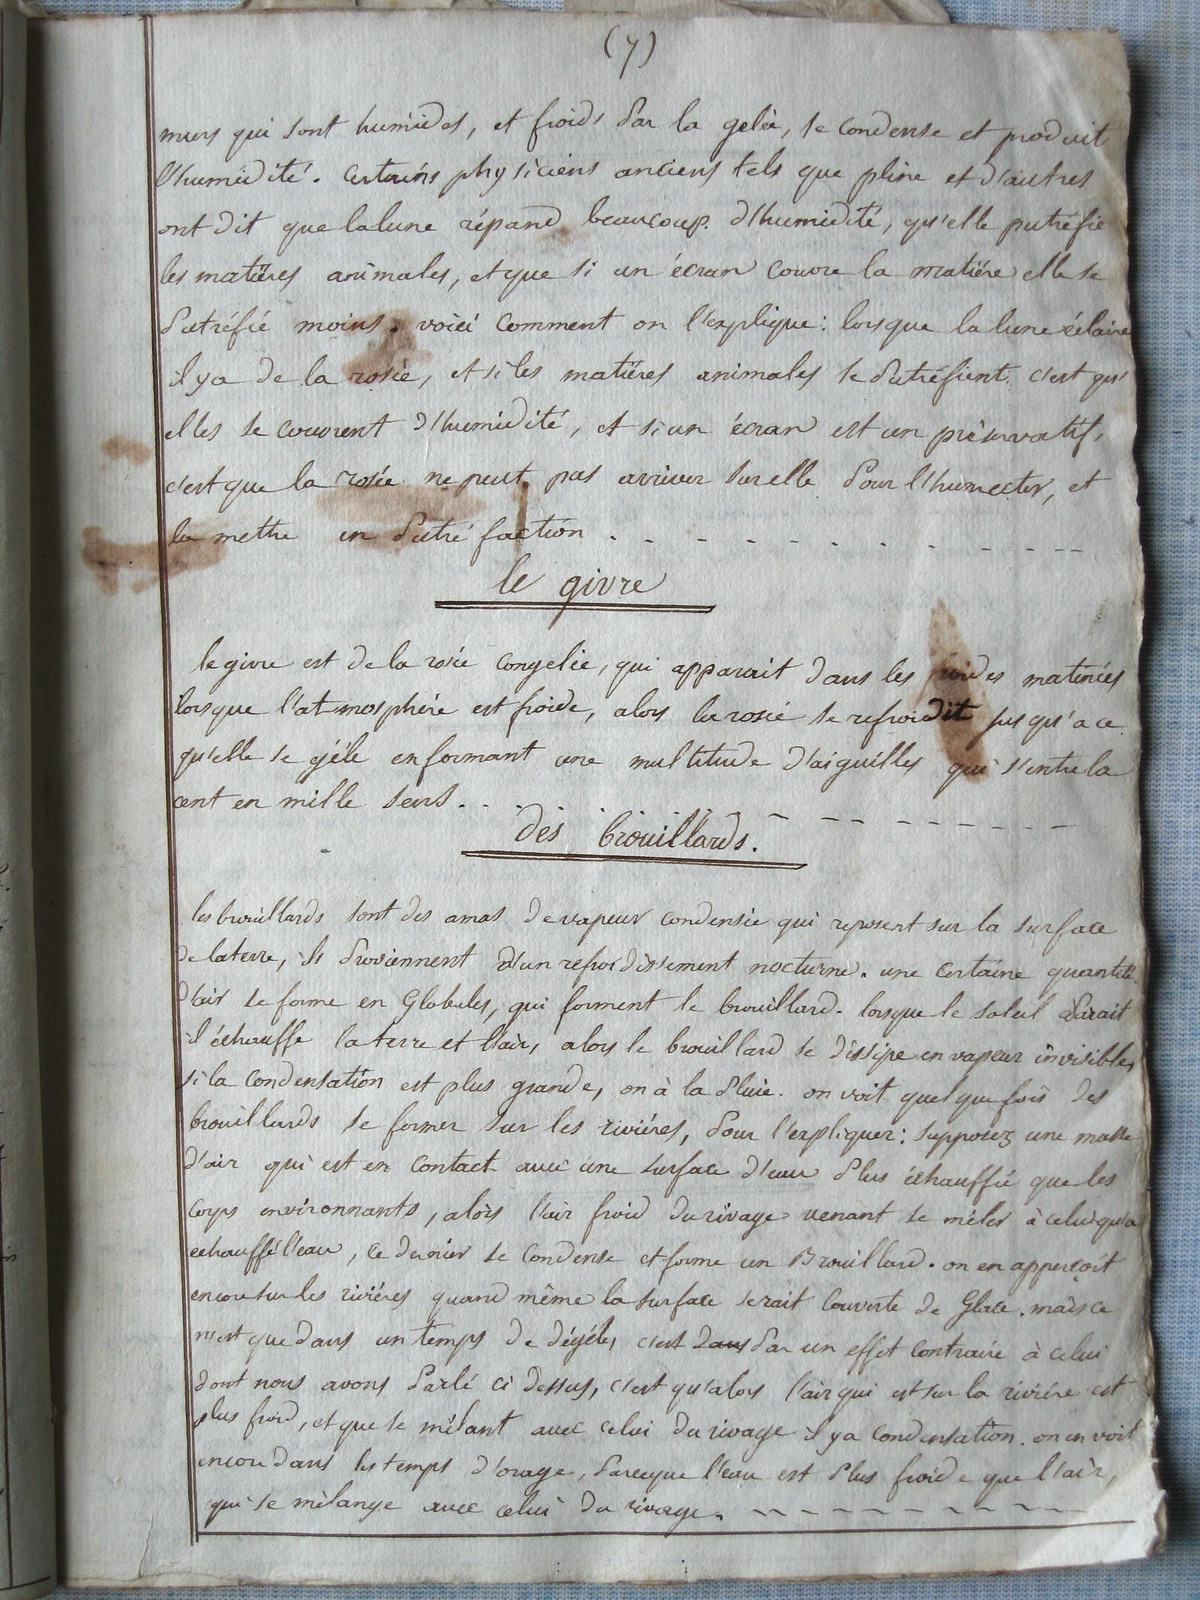 (7)
murs qui sont humides, et froids par la gelée, se condense et produit
l'humidité. certains physiciens anciens tels que pline et d'autres
ont dit que la lune répand beaucoup d'humidité, qu'elle putréfie
les matières animales, et que si un écran couvre la matière elle se
putréfie moins. voici comment on l'explique: lorsque la lune éclaire
il y a de la rosée, et si les matières animales se putréfient c'est qu'
elles se couvrent d'humidité, et si un écran est un préservatif,
c'est que la rosée ne peut pas arriver sur elle pour l'humecter, et
la mettre en putréfaction . - - - - - - - - - -
le givre
le givre est de la rosée congelée, qui apparait dans les froides matinées
lorsque l'atmosphère est froide, alors la rosée se refroidit jusqu'a ce
qu'elle se gèle en formant une multitude d'aiguilles qui s'entrela
cent en mille sens. - - - - - - - - -
des brouillards.
les brouillards sont des amas de vapeur condensée qui reposent sur la surface
de la terre, ils proviennent d'un refroidissement nocturne. une certaine quantité
d'air se forme en Globules, qui forment le brouillard. lorsque le soleil parait
il échauffe la terre et l'air, alors le brouillard se dissipe en vapeur invisible,
si la condensation est plus grande, on à la pluie. on voit quelque fois des
brouillards se former sur les rivières, pour l'expliquer: supposez une masse
d'air qui est en contact avec une surface d'eau plus échauffée que les
corps environnants, alors l'air froid du rivage venant se mêler à celui qu'a
echauffé l'eau, ce dernier se condense et forme un Brouillard. on en apperçoit
encore sur les rivières quand même la surface serait couverte de Glace. mais ce
n'est que dans un temps de dégèle, c'est dans par un effet contraire à celui
dont nous avons parlé ci dessus, c'est qu'alors l'air qui est sur la rivière est
plus froid, et que se mêlant avec celui du rivage il y a condensation. on en voit
encore dans les temps d'orage, parceque l'eau est plus froide que l'air,
qui se mèlange avec celui du rivage. - - - - - - - -